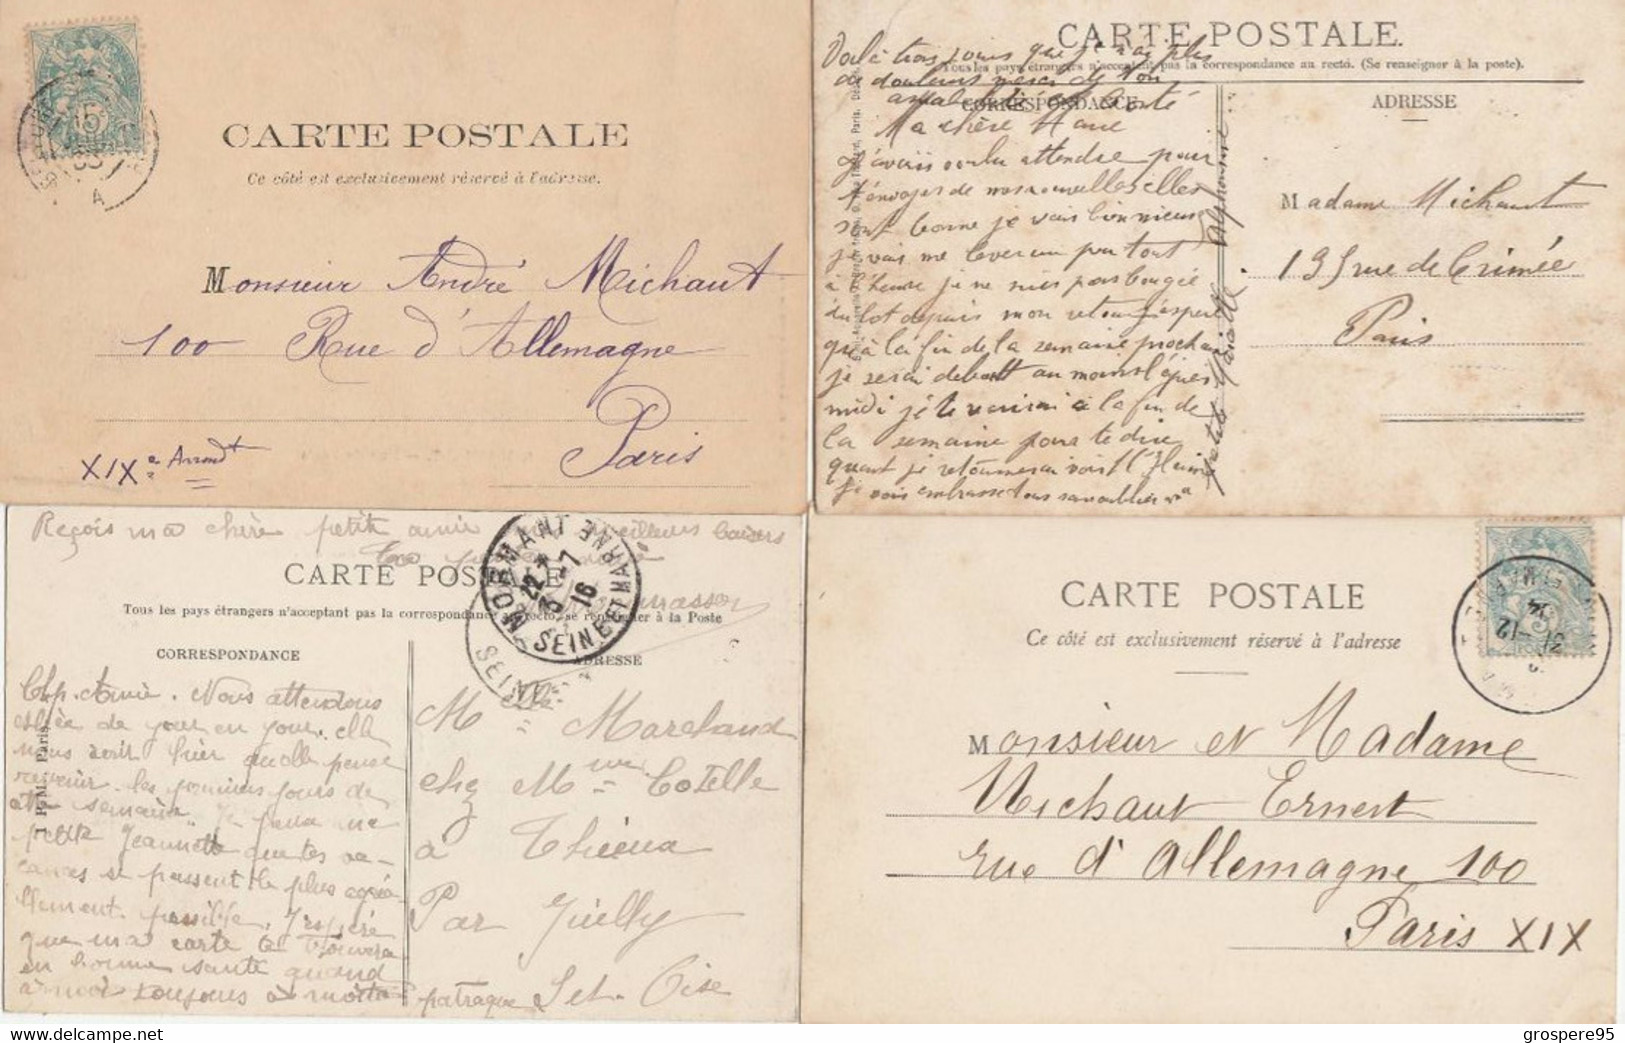 CARTE POSTALE
Ce côté est exclusivement réservé à l'adresse.
A
Monsieur André Michaut
100 Rue d'Allemagne
Paris
XIXe Arrondt
CARTE POSTALE.
Tous les pays étrangers n'acceptent pas la correspondance au recto. (Se renseigner à la poste).
CORRESPONDANCE
ADRESSE
Voilà trois jours que je n'ai plus
de douleurs merci de ton
Ma chère
j'avais voulu attendre pour
t'envoyer de mes nouvelles elles
sont bonne je vais bien mieux
je vais me lever un peu tout
à l'heure je ne suis pas bougée
du lot depuis mon retour j'espère
qu'à la fin de la semaine prochain
je serai debout au moins l'après
midi je te à la fin de
la semaine pour te dire
quant je retournerai voir
je vois embrasse tous sans oublier
Madame Michaut
195 rue de Crimée
Paris
Reçois ma chère petite amie meilleurs baisers
CARTE POSTALE
Tous les pays étrangers n'acceptent pas la correspondance au recto, se renseigner à la Poste
CORRESPONDANCE
ADRESSE
MORMANT
SEINE ET MARNE
22
3-7
16
Chp. Amie. Nous attendons
de jour en jour. elle
nous écrit hier qu'elle pense
revenir les premiers jours de
semaine.
petite Jeannette que tes va-
cances se passent le plus agréa
blement possible. J'espère
que ma carte te trouvera
en bonne santé quand
à moi toujours à moitié
patraque
Mlle Marchand
chez Mme Cotelle
à
Par Juilly
Set. Oise
CARTE POSTALE
Ce côté est exclusivement réservé à l'adresse
31-12
04
Monsieur et Madame
Michaut Ernest
rue d'Allemagne 100
Paris XIX
grospere95